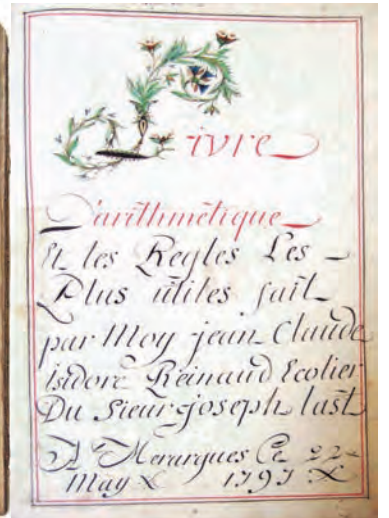 Livre
D'arithmétique
Et les Regles Les
Plus utiles fait
par Moy jean Claude
isidore Reinaud Ecolier
Du Sieur joseph last
A Merargues Ce 22
May 1797